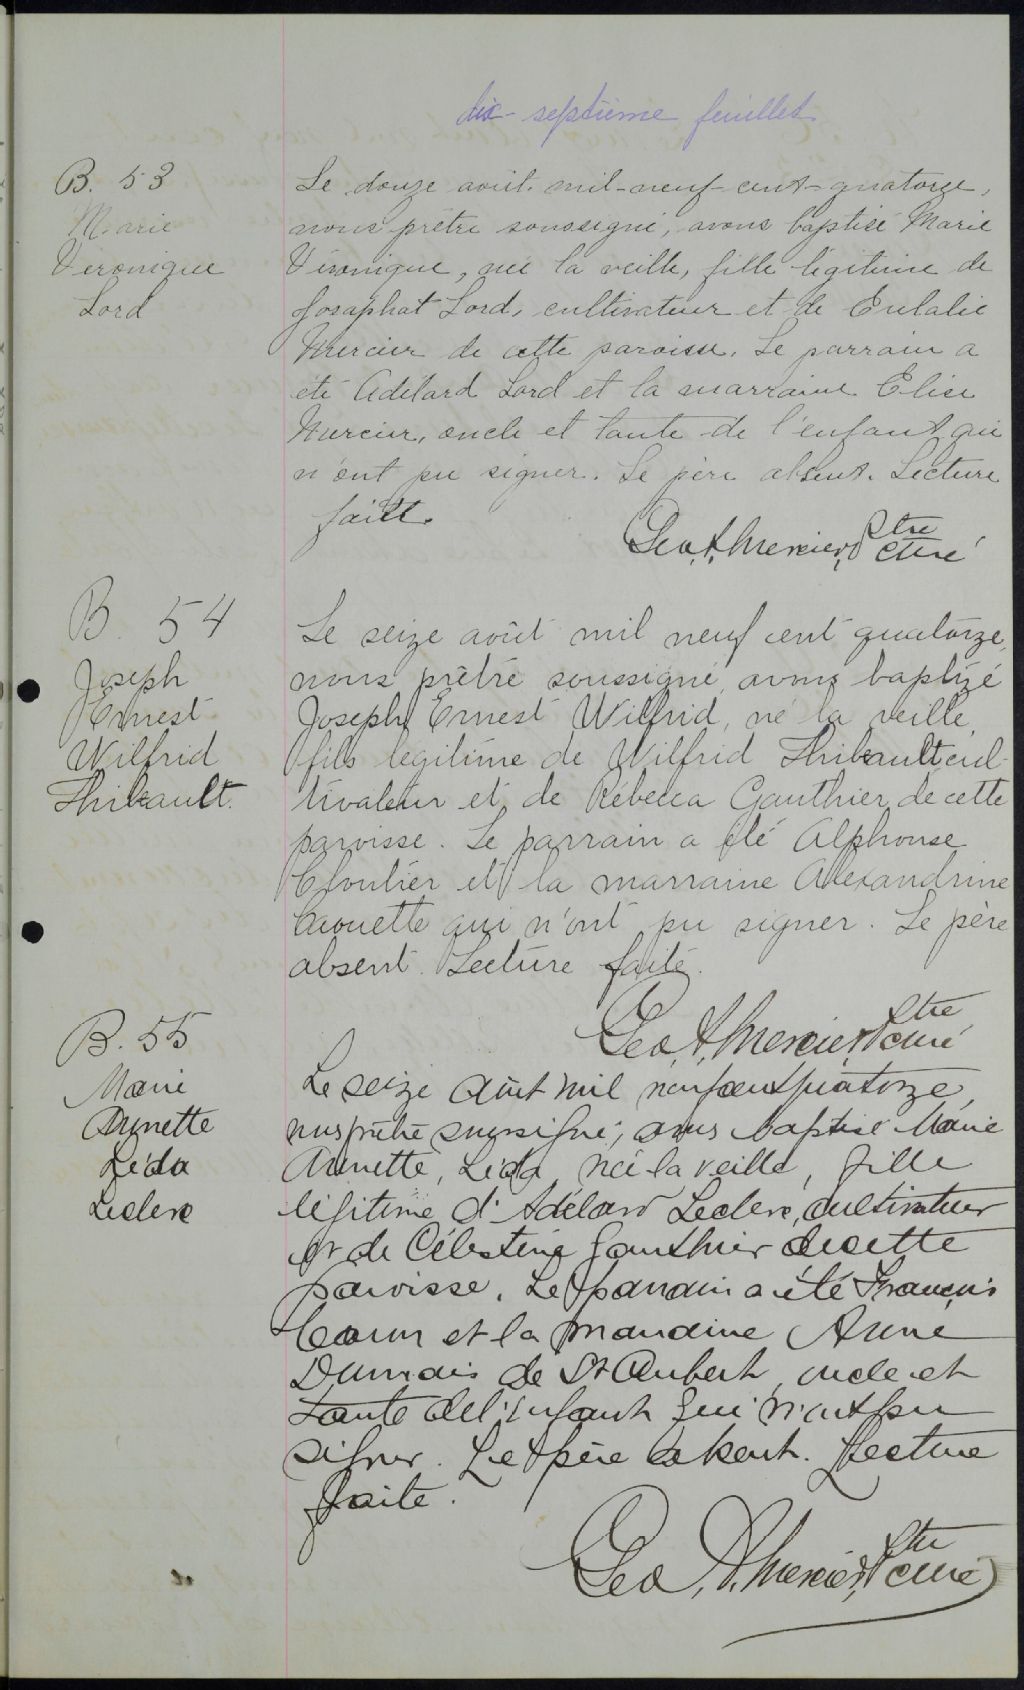 dix-septième feuillet
B. 53
Marie
Véronique
Lord
Le douze août mil-neuf-cent-quatorze,
nous prêtre soussigné, avons baptisé Marie
Véronique, née la veille, fille légitime de
Josaphat Lord, cultivateur et de Eulalie
Mercier de cette paroisse. Le parrain a
été Adélard Lord et la marraine Elise
Mercier, oncle et tante de l'enfant qui
n'ont pu signer. Le père absent. Lecture
faite.
Geo. A. Mercier, Ptre
curé
B. 54
Joseph
Ernest
Wilfrid
Thibault.
Le seize août mil neuf cent quatorze,
nous prêtre soussigné, avons baptizé
Joseph Ernest Wilfrid, né la veille,
fils légitime de Wilfrid Thibault cul-
tivateur et de Rébecca Gauthier de cette
paroisse. Le parrain a été Alphonse
Cloutier et la marraine Alexandrine
Caouette qui n'ont pu signer. Le père
absent. Lecture faite.
Geo. A. Mercier, Ptre
curé
B. 55
Marie
Annette
Léda
Leclerc
Le seize août mil neuf cent quatorze,
nous prêtre soussigné, avons baptisé Marie
Annette, Léda, née la veille, fille
légitime d'Adélard Leclerc, cultivateur
et de Célestine Gauthier de cette
paroisse. Le parrain a été François
Caron et la marraine Anna
Dumais de St Aubert, oncle et
tante de l'enfant qui n'ont pu
signer. Le père absent. Lecture
faite.
Geo. A. Mercier, Ptre
curé